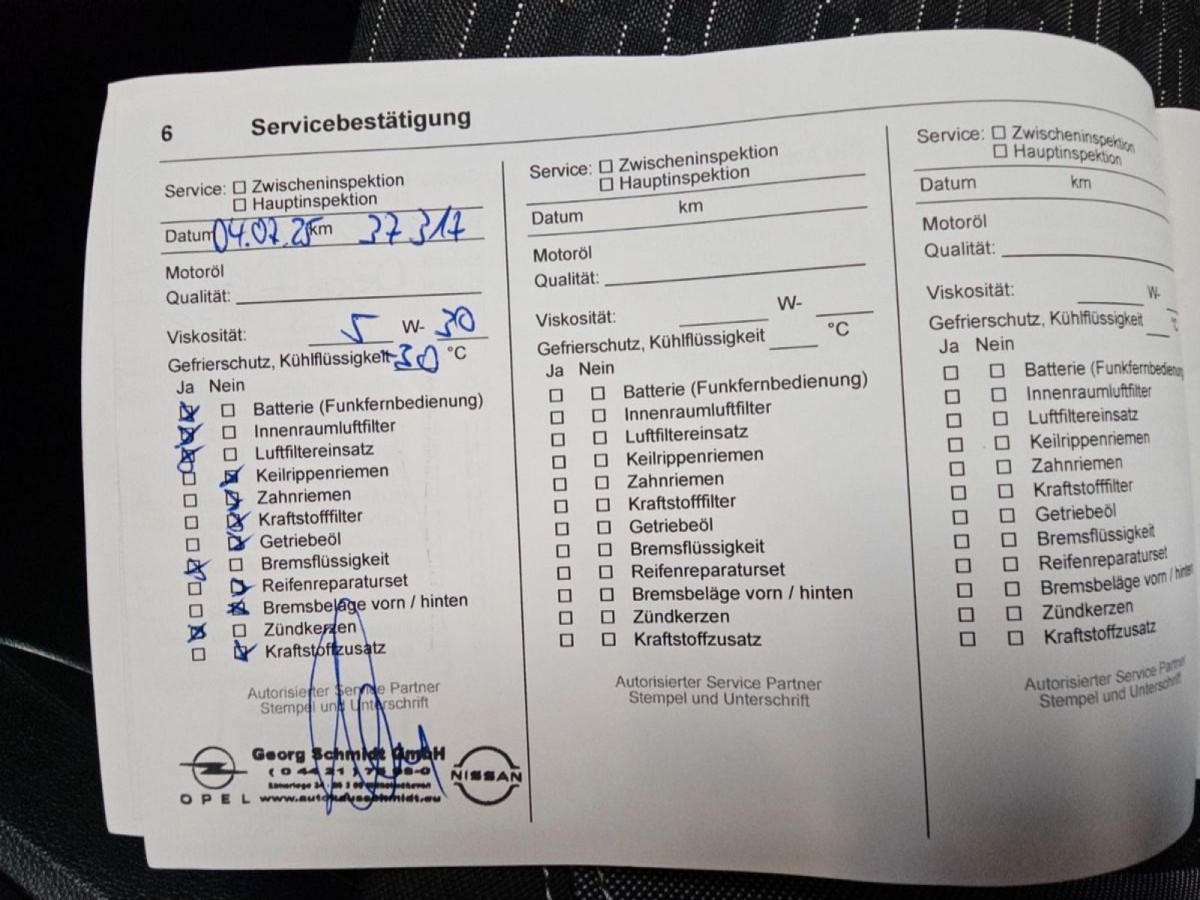 6 Servicebestätigung
Service: ☐ Zwischeninspektion
☐ Hauptinspektion
Datum 04.07.25 km 37317
Motoröl
Qualität:
Viskosität: 5 W- 30
Gefrierschutz, Kühlflüssigkeit -30 °C
Ja Nein
☒ ☐ Batterie (Funkfernbedienung)
☒ ☐ Innenraumluftfilter
☒ ☐ Luftfiltereinsatz
☐ ☒ Keilrippenriemen
☐ ☒ Zahnriemen
☐ ☒ Kraftstofffilter
☐ ☒ Getriebeöl
☒ ☐ Bremsflüssigkeit
☐ ☒ Reifenreparaturset
☐ ☒ Bremsbeläge vorn / hinten
☒ ☐ Zündkerzen
☐ ☒ Kraftstoffzusatz
Autorisierter Service Partner
Stempel und Unterschrift
OPEL
Georg Schmidt GmbH
www.autohausschmidt.eu
NISSAN
Service: ☐ Zwischeninspektion
☐ Hauptinspektion
Datum km
Motoröl
Qualität:
Viskosität: W-
Gefrierschutz, Kühlflüssigkeit °C
Ja Nein
☐ ☐ Batterie (Funkfernbedienung)
☐ ☐ Innenraumluftfilter
☐ ☐ Luftfiltereinsatz
☐ ☐ Keilrippenriemen
☐ ☐ Zahnriemen
☐ ☐ Kraftstofffilter
☐ ☐ Getriebeöl
☐ ☐ Bremsflüssigkeit
☐ ☐ Reifenreparaturset
☐ ☐ Bremsbeläge vorn / hinten
☐ ☐ Zündkerzen
☐ ☐ Kraftstoffzusatz
Autorisierter Service Partner
Stempel und Unterschrift
Service: ☐ Zwischeninspektion
☐ Hauptinspektion
Datum km
Motoröl
Qualität:
Viskosität: W-
Gefrierschutz, Kühlflüssigkeit
Ja Nein
☐ ☐ Batterie (Funkfernbedienung
☐ ☐ Innenraumluftfilter
☐ ☐ Luftfiltereinsatz
☐ ☐ Keilrippenriemen
☐ ☐ Zahnriemen
☐ ☐ Kraftstofffilter
☐ ☐ Getriebeöl
☐ ☐ Bremsflüssigkeit
☐ ☐ Reifenreparaturset
☐ ☐ Bremsbeläge vorn / hinten
☐ ☐ Zündkerzen
☐ ☐ Kraftstoffzusatz
Autorisierter Service Partner
Stempel und Unterschrift